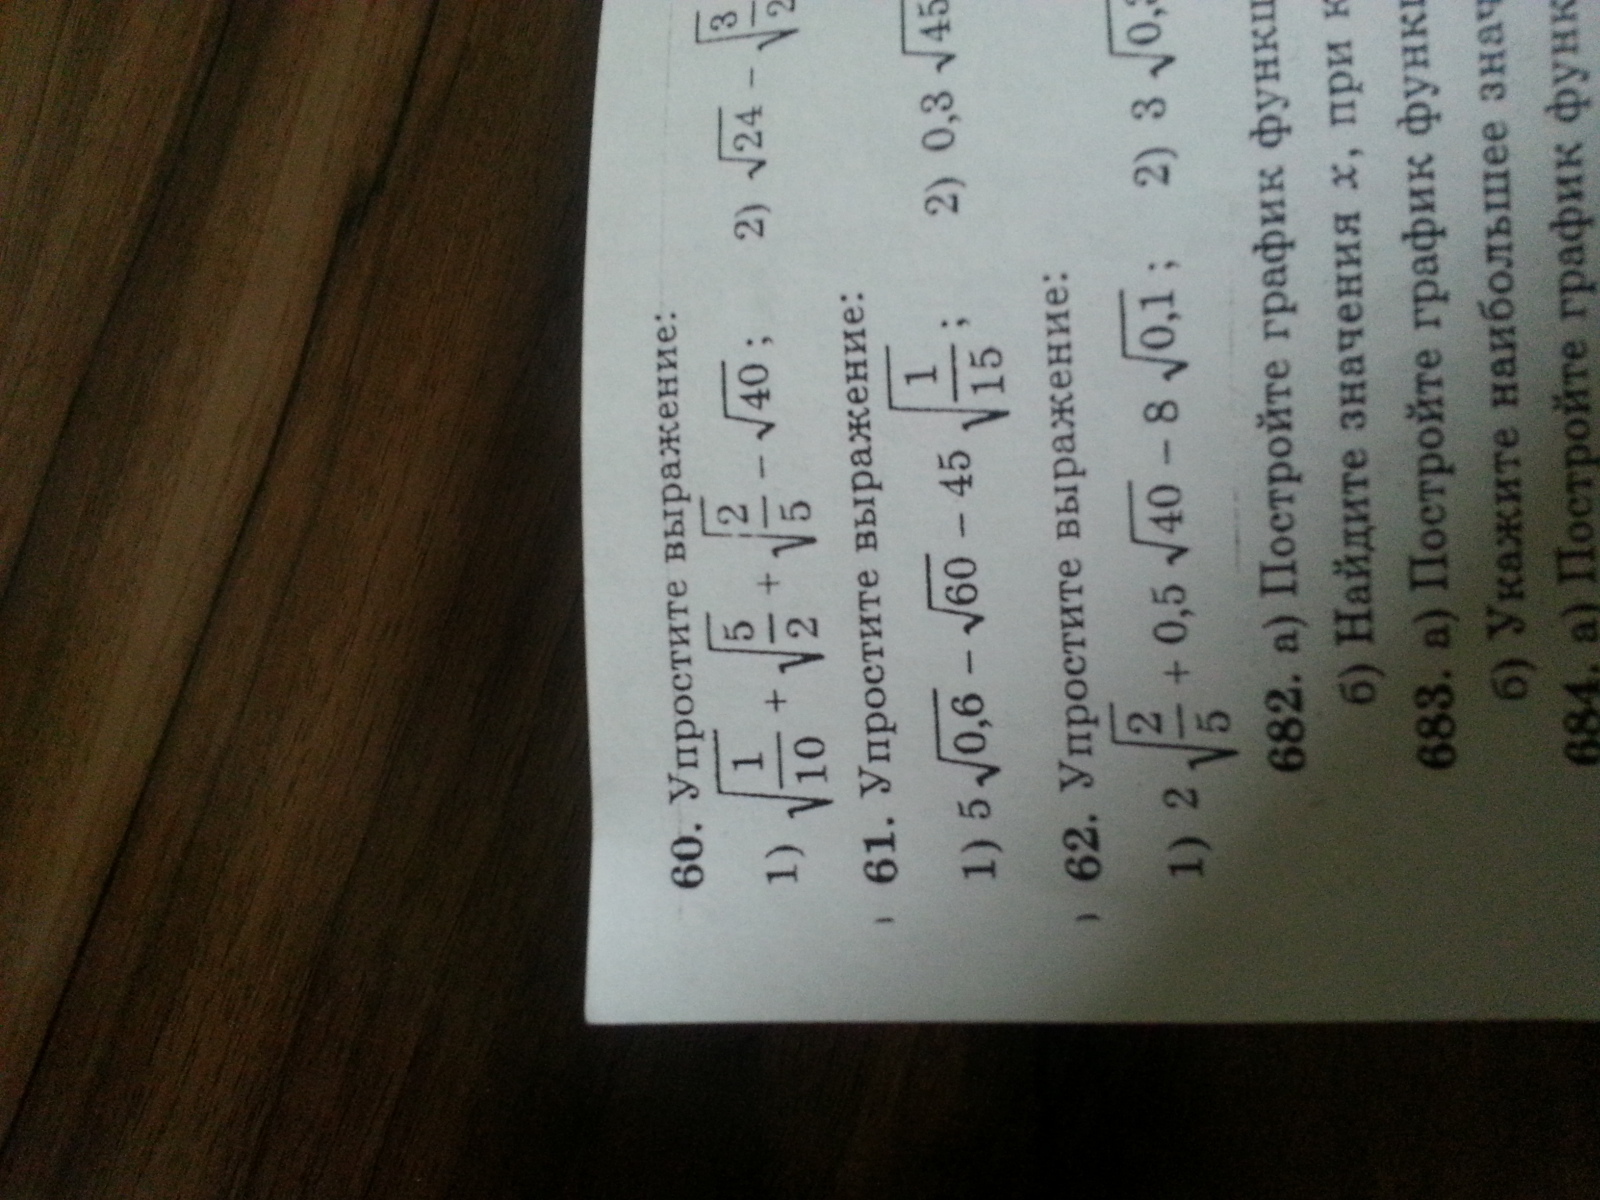 60. Упростите выражение:
1) √(1/10) + √(5/2) + √(2/5) − √40; 2) √24 − √(3/2
61. Упростите выражение:
1) 5√0,6 − √60 − 45√(1/15); 2) 0,3√45
62. Упростите выражение:
1) 2√(2/5) + 0,5√40 − 8√0,1; 2) 3√0,
682. а) Постройте график функц
б) Найдите значения x, при к
683. а) Постройте график функц
б) Укажите наибольшее знач
684. а) Постройте график функ